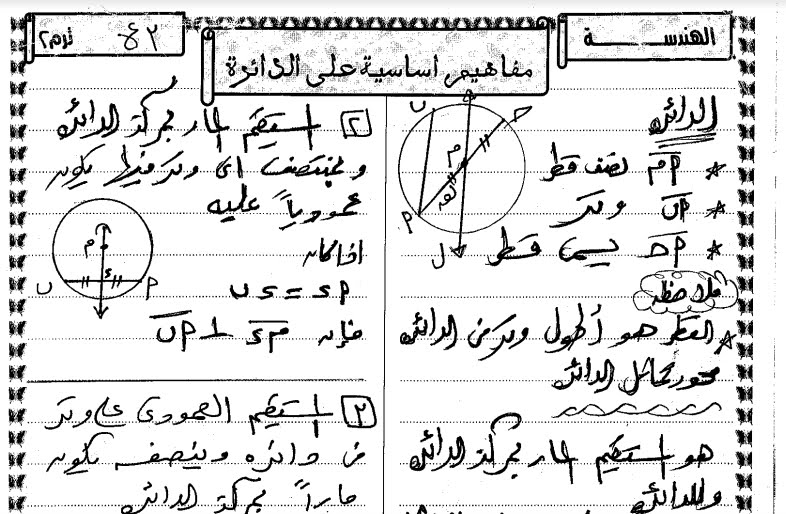 الهندســـة
٢ع
ترم٢
مفاهيم اساسية على الدائرة
الدائرة
* م٢ نصف قطر
* ٢ب وتر
* ٢ح يسمى قطر
ملاحظه
* القطر هو أطول وتر في الدائرة
محور تماثل الدائرة
هو المستقيم المار بمركز الدائرة
وللدائرة
٢ المستقيم المار بمركز الدائرة
وبمنتصف اى وتر فيها يكون
عمودياً عليه
اذا كان
٢ء = ء ب
فإن مء ⊥ ٢ب
٣ المستقيم العمودى على وتر
فى دائره وينصفه يكون
ماراً بمركز الدائرة